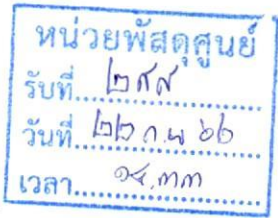 หน่วยพัสดุศูนย์
รับที่ ๒๙๙
วันที่ ๒๒ ก.พ ๖๖
เวลา ๑๔.๓๓